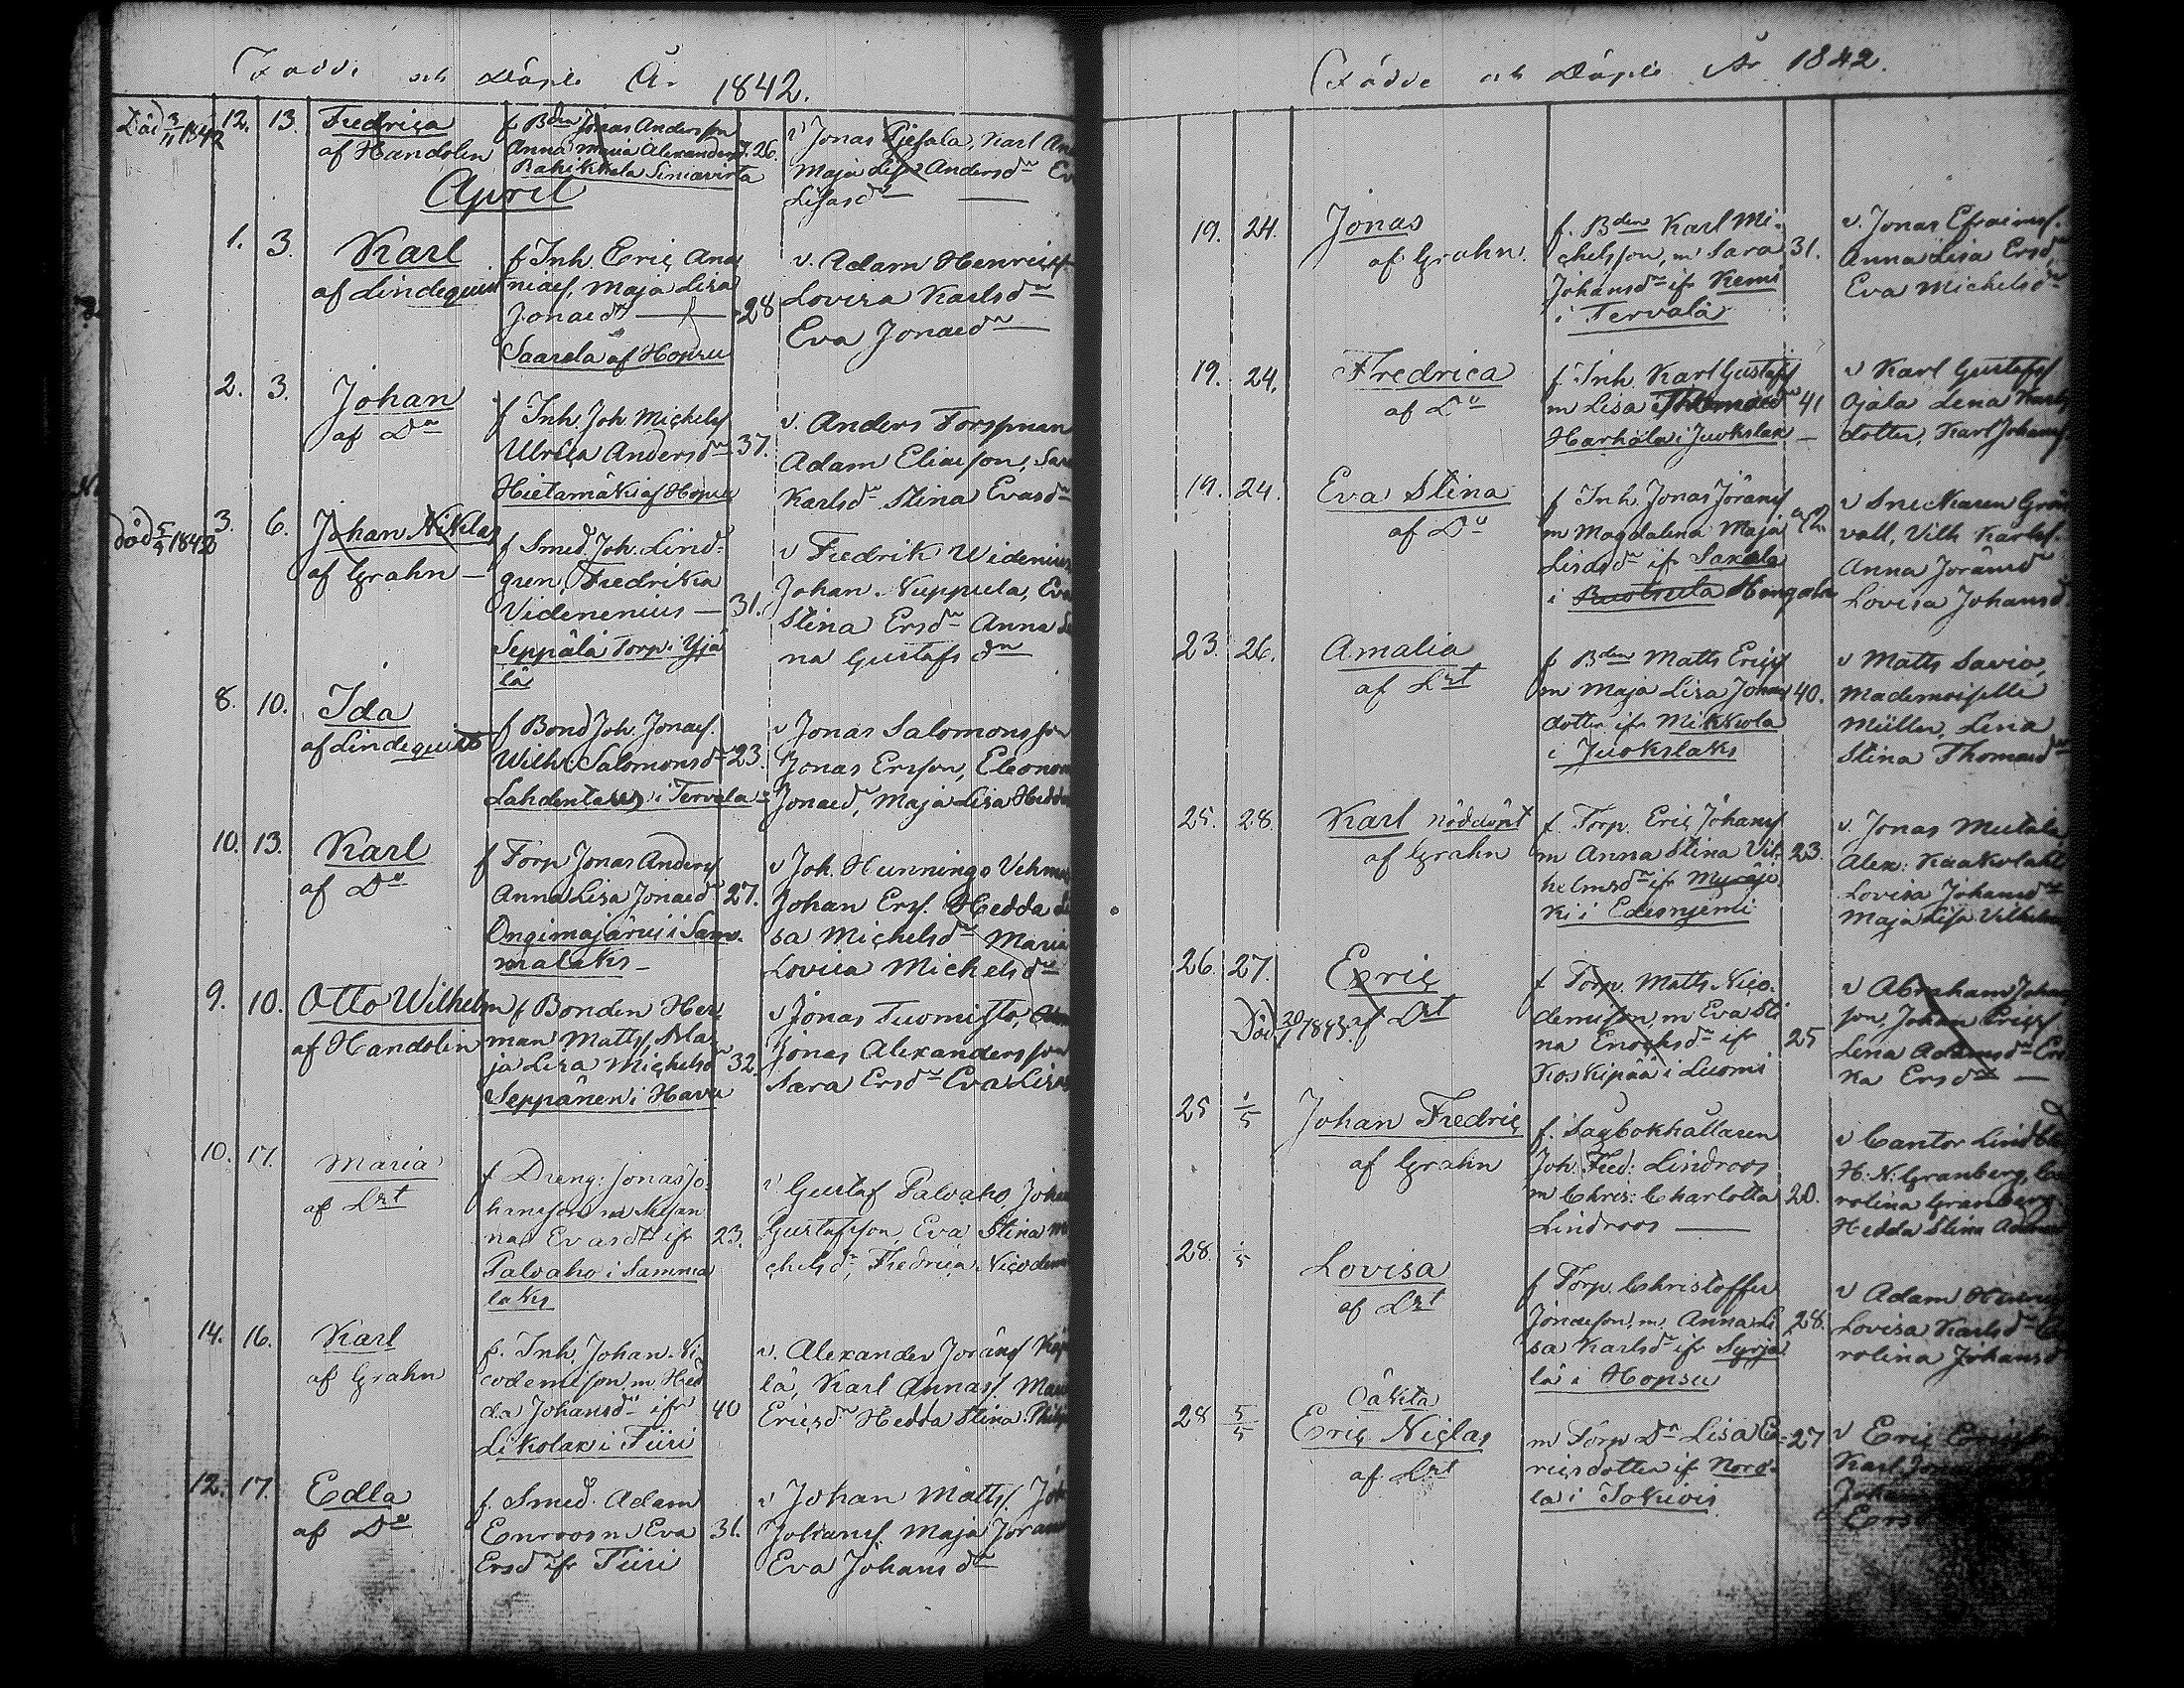 Födde och Döpte År 1842.
Död 3/11 1842 12. 13. Fredrica
af Handolin
f Bden Jonas Andersson
Anna Maria Alexandersd. 26.
Rahikkala Siniavirta
v Jonas Pjesala, Karl An
Maja Lisa Andersdr Ev
Lisasdr
April
1. 3. Karl
af Lindequist
f Inh. Eric Ana
niaes. Maja Lisa
Jonaedr 28
Saarela af Hopsu
v. Adam Henricss
Lovisa Karlsdr
Eva Jonaedr
2. 3. Johan
af Do
f Inh. Joh. Michels
Ulrica Andersdr 37.
Hietamäki af Hopsu
v. Anders Forsman
Adam Eliaeson, Sar
Karlsdr Stina Evasdr
död 5/9 1842 3. 6. Johan Niklas
af Grahn
f Smed. Joh. Lind=
gren, Fredrika
Videnenius 31.
Seppälä Torp. i Yjä
lä
v Fredrik Widenius
Johan Nuppula, Eva
Stina Ersdr Anna Li
na Gustafsdr
8. 10. Ida
af Lindequist
f Bond Joh. Jonaes.
Wilh: Salomonsdr 23.
Lahdentaus i Tervala
v Jonas Salomonsson
Jonas Ersson, Eleonora
Jonaedr, Maja Lisa Hedda
10. 13. Karl
af Do
f Torp Jonas Anders
Anna Lisa Jonaedr 27.
Ongimajärvi i Sam=
malaks
v Joh. Hunningo Vehma
Johan Ers. Hedda Li
sa Michelsdr Maria
Lovisa Michelsdr
9. 10. Otto Wilhelm
af Handolin
f Bonden Her=
man Matts, Ma=
ja Lisa Michelsdr 32.
Seppänen i Havu
v Jonas Tuomisto,
Jonas Alexandersson
Sara Ersdr Eva Lisas
10. 17. Maria
af Drt
f Dreng: Jonas Jo=
hansson m Susan
na Evasdr ifr 23.
Palvaho i Samma
laks
v Gustaf Palvaho, Johan
Gustafsson, Eva Stina Mi
chelsdr, Fredrica Nicodem
14. 16. Karl
af Grahn
f. Inh. Johan Ni
codemison m Hed
da Johansdr ifr 40
Likolax i Tiiri
v. Alexander Jöransf
lä, Karl Annass. Maria
Ericsdr Hedda Stina Philip
12. 17. Edla
af Do
f. Smed. Adam
Enroos m Eva 31.
Ersdr ifr Tiiri
v Johan Matts. Joh
Johans Maja Joransd
Eva Johansdr
Födde och Döpte År 1842.
19. 24. Jonas
af Grahn.
f. Bden Karl Mi=
chelsson, m Sara 31.
Johansdr ifr Kemi
i Tervala
v. Jonas Efraims.
Anna Lisa Ersd.
Eva Michelsdr
19. 24. Fredrica
af Do
f Inh. Karl Gustafs
m Lisa Thomaedr 41
Harhala i Juokslax
v Karl Gustafs
Ojala Lena Karls
dotter, Karl Johans.
19. 24. Eva Stina
af Do
f Inh. Jonas Jörans
m Magdalena Maja 42
Lisasdr ifr Saxala
i Ruotsula Hongola
v Snickaren Grön
vall, Vilh Karlss.
Anna Joransdr
Lovisa Johansd
23. 26. Amalia
af Drt
f Bden Matts Erics
m Maja Lisa Johans 40.
dotter ifr Mikkola
i Juokslaks
v Matts Savio,
Mademoiselle
Müller, Lena
Stina Thomaedr
25. 28. Karl nöddöpt
af Grahn
f. Torp. Eric Johans
m Anna Stina Vil= 23.
helmsdr ifr Myräjä
ki i Edesnjemi
v. Jonas Mutala
Alex: Kaakolaht
Lovisa Johansdr
Maja Lisa Vilhelms
26. 27. Eric
Död 20/7 1843. af Drt
f Torp. Matts Nico=
demisson, m Eva Sti
na Enochsdr ifr 25
Koskipää i Luomi
v Abraham Johan
son, Johan Erics.
Lena Adamsdr Eri
ka Ersdr
25 1/5 Johan Fredric
af Grahn
f. Sagbokhållaren
Joh. Fred: Lindroos
m Chris: Charlotta 20.
Lindroos
v Cantor Lindbl
H: N: Granberg, Ca
rolina Granberg
Hedda Stina Adams
28. 1/5 Lovisa
af Drt
f Torp. Christoffer
Jonaeson, m. Anna Li 28.
sa Karlsdr ifr Syrjä
lä i Hopsu
v Adam Henric
Lovisa Karlsdr Ca
rolina Johansd
28 5/5 Oäkta
Eric Niclas
af Drt
m Torp. Dr Lisa E= 27
ricsdotter if Nord=
la i Jokiois
v Eric Erics
Karl Jonae
Johan
Ers